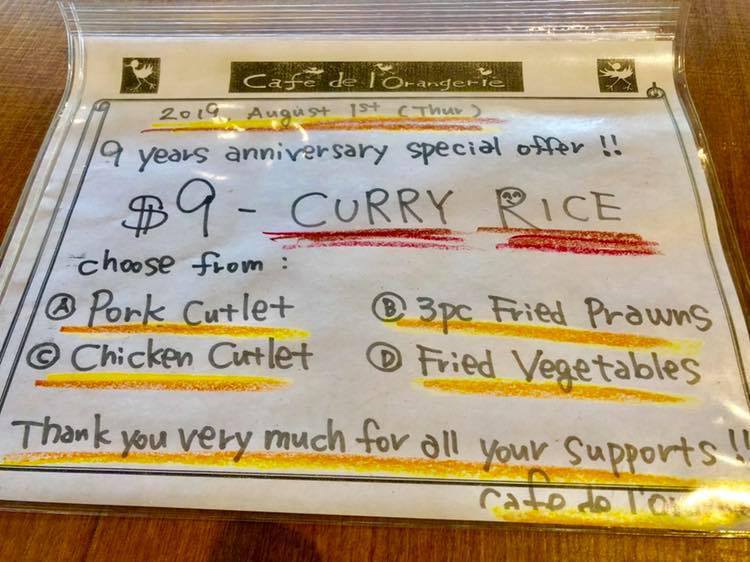 Cafe de l'Orangerie
2019, August 1st (Thur)
9 years anniversary special offer !!
$9- CURRY RICE
choose from :
Ⓐ Pork Cutlet Ⓑ 3pc Fried Prawns
Ⓒ Chicken Cutlet Ⓓ Fried Vegetables
Thank you very much for all your supports !!
Cafe de